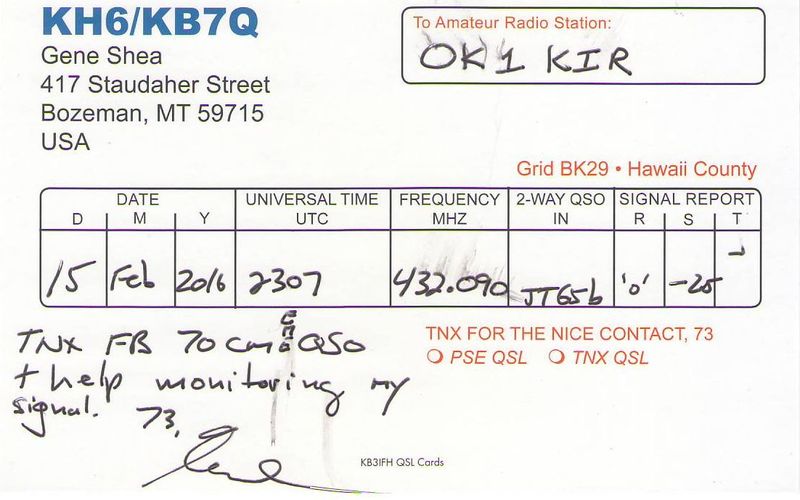 KH6/KB7Q
Gene Shea
417 Staudaher Street
Bozeman, MT 59715
USA
To Amateur Radio Station:
OK1 KIR
Grid BK29 • Hawaii County
DATE UNIVERSAL TIME FREQUENCY 2-WAY QSO SIGNAL REPORT
D M Y UTC MHZ IN R S T
15 Feb 2016 2307 432.090 JT65b 'O' -25
TNX FB 70 cm EME QSO
+ help monitoring my
signal. 73,
Gene
TNX FOR THE NICE CONTACT, 73
PSE QSL TNX QSL
KB3IFH QSL Cards